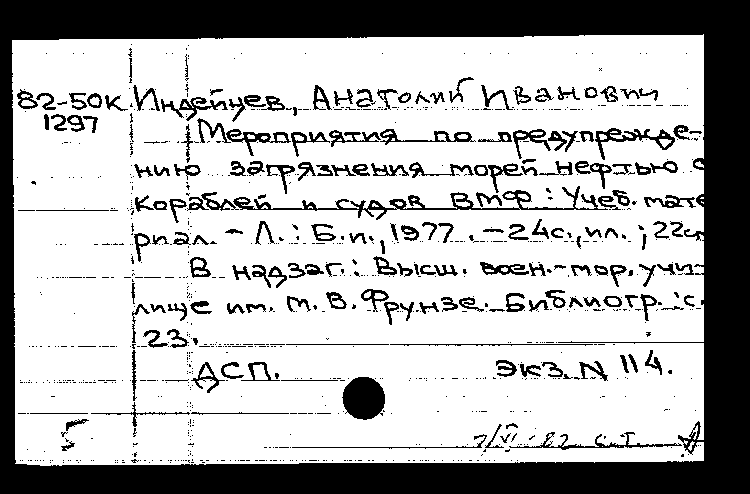 82-50К Индейцев, Анатолий Иванович
1297
Мероприятия по предупрежде-
нию загрязнения морей нефтью с
кораблей и судов ВМФ: Учеб. мате
риал. - Л.: Б.и., 1977. - 24с., ил.; 22см
В надзаг.: Высш. воен.-мор. учи-
лище им. М. В. Фрунзе. Библиогр.: с.
23.
ДСП. Экз. N 114.
5
7/VI-82 с.т.